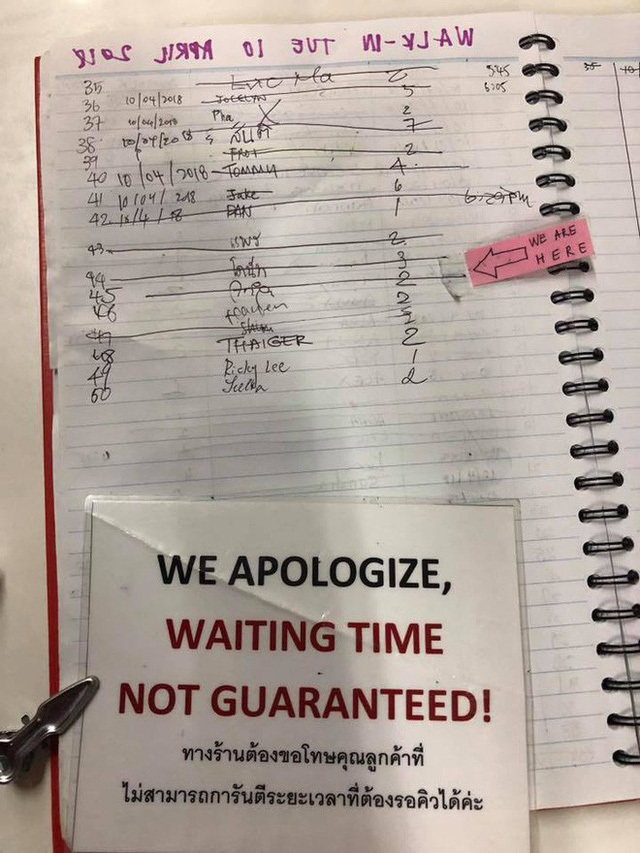 WALK-IN TUE 10 APRIL 2018
35 2 5:45
36 10/04/2018 JOCELYN 5 6:05
37 10/04/2018 Pha 2
38 10/04/2018 NUTT 7
39 2
40 10/04/2018 TOMMY 4
41 10/04/2018 Jake 6
42. 10/4/18 DAN 1 6:29pm
43 2
WE ARE
HERE
44 3
45 2
46 2
47
48 THAIGER 2
49 Ricky Lee 1
60 2
WE APOLOGIZE,
WAITING TIME
NOT GUARANTEED!
ทางร้านต้องขอโทษคุณลูกค้าที่
ไม่สามารถการันตีระยะเวลาที่ต้องรอคิวได้ค่ะ